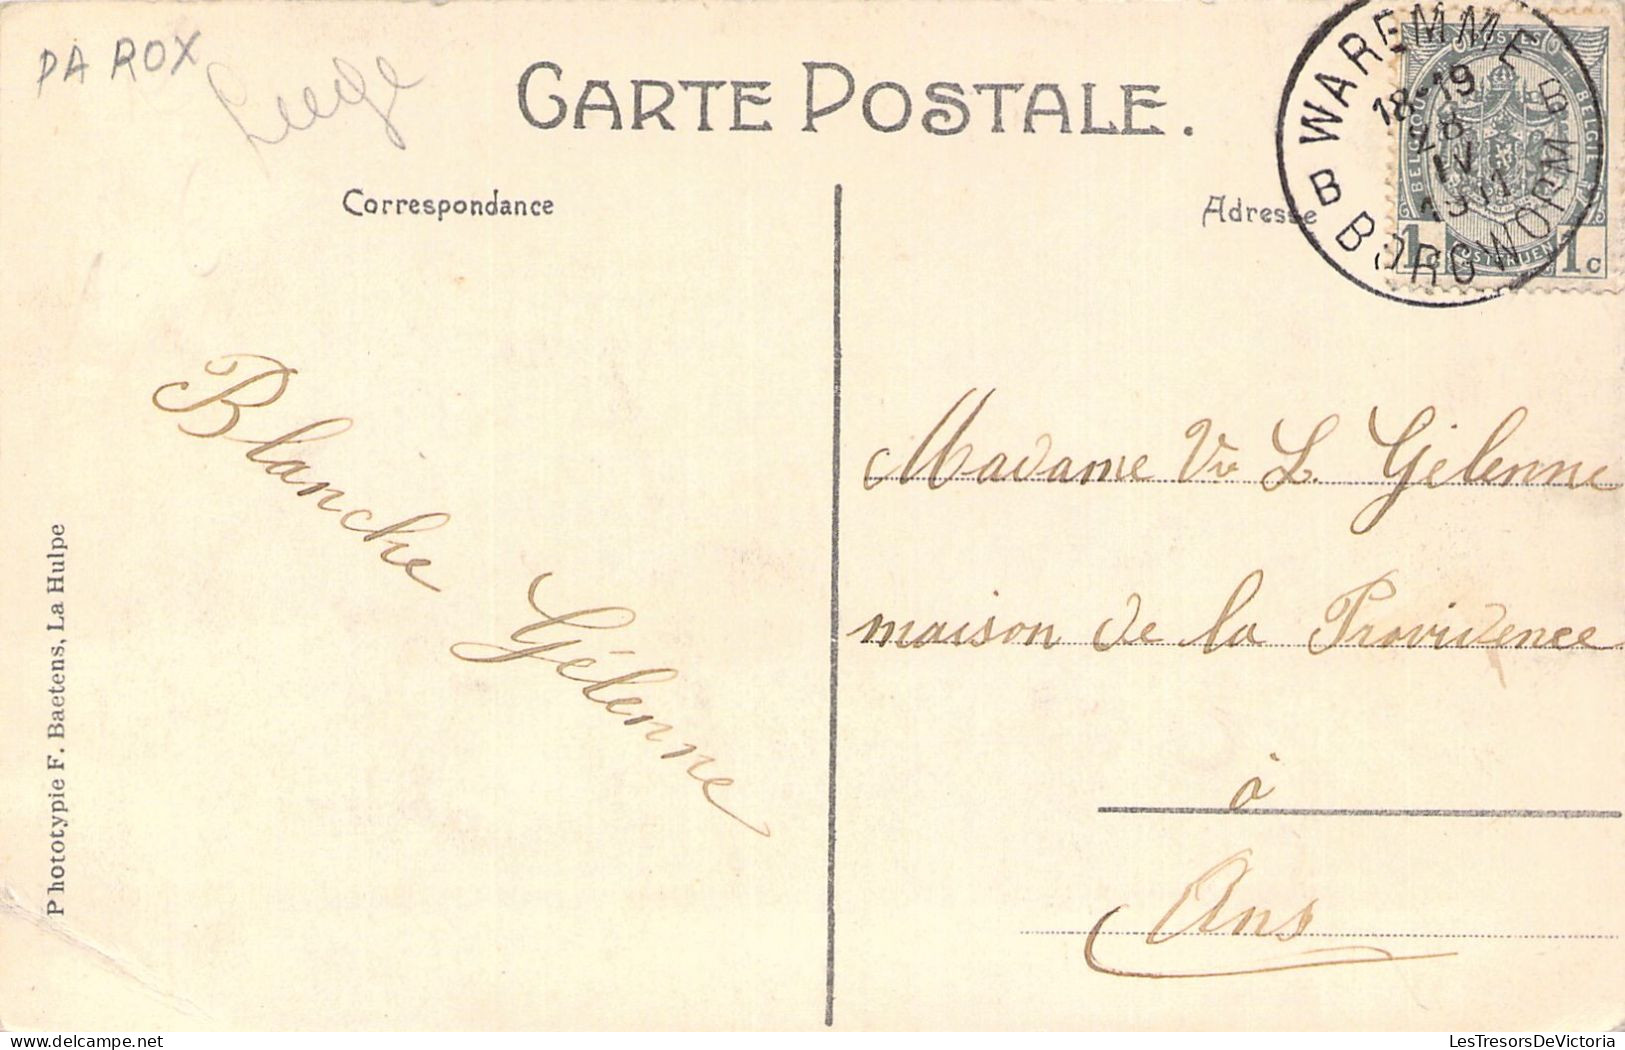 PA ROX
Liege
CARTE POSTALE.
Correspondance
Adresse
WAREMME
18-19
28
IV
1911
B BORGWORM B
POSTES
BELGIQUE
BELGIE
1c
POSTERIJEN
1c
Blanche Gélenne
Madame Vve L. Gélenne
maison de la Providence
à
Ans
Phototypie F. Baetens, La Hulpe
LesTresorsDeVictoria